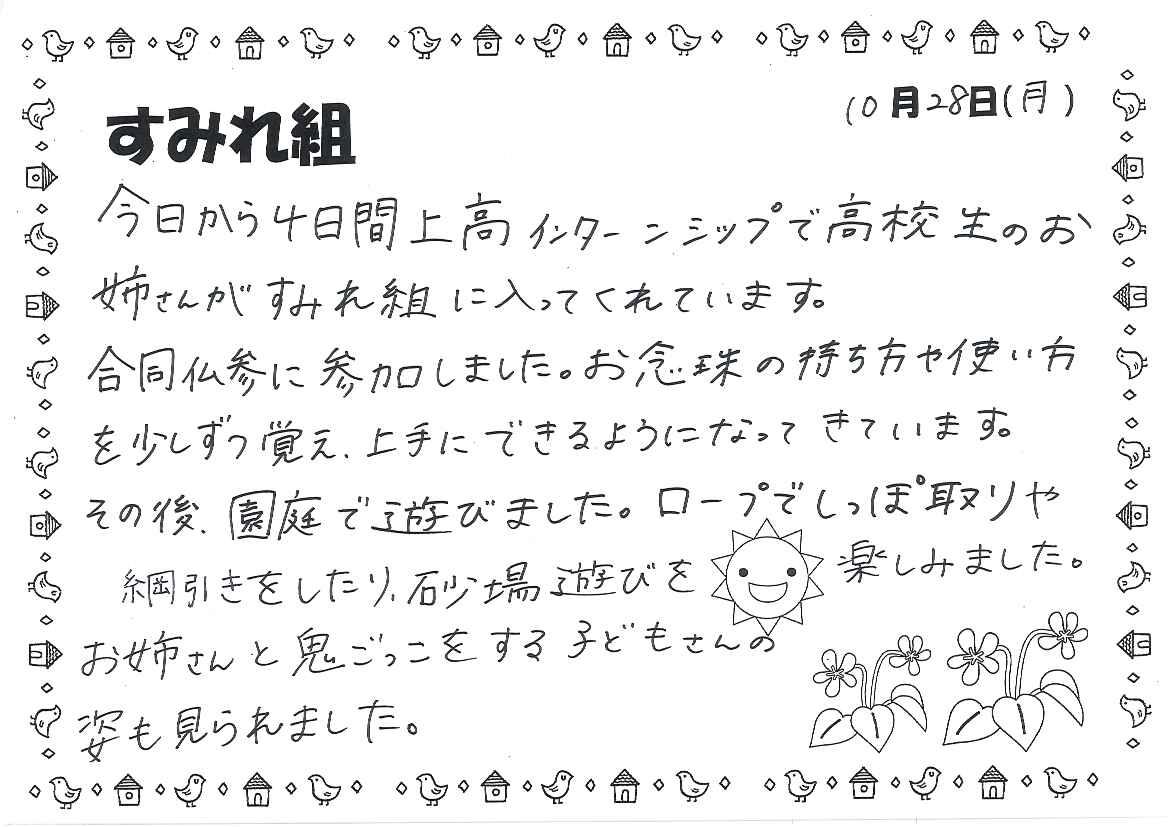 すみれ組
10月28日(月)
今日から4日間上高インターンシップで高校生のお
姉さんがすみれ組に入ってくれています。
合同仏参に参加しました。お念珠の持ち方や使い方
を少しずつ覚え、上手にできるようになってきています。
その後、園庭で遊びました。ロープでしっぽ取りや
綱引きをしたり、砂場遊びを楽しみました。
お姉さんと鬼ごっこをする子どもさんの
姿も見られました。